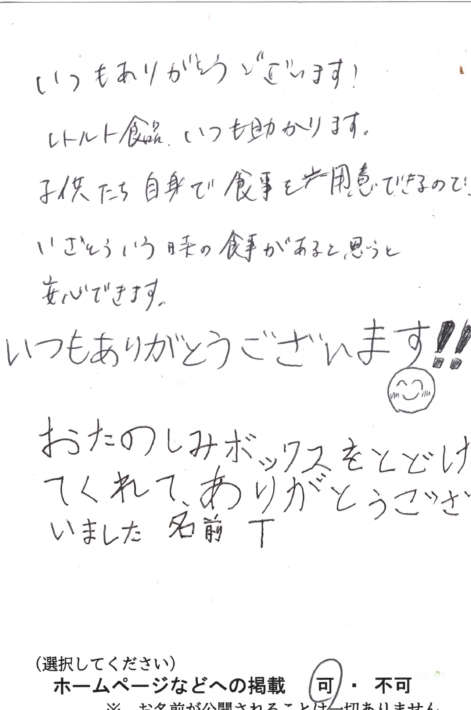 いつもありがとうございます!
レトルト食品、いつも助かります。
子供たち自身で食事を用意できるので、
いざそういう時の食事があると思うと
安心できます。
いつもありがとうございます!!
おたのしみボックスをとどけ
てくれて、ありがとうござ
いました 名前 T
(選択してください)
ホームページなどへの掲載 可 ・ 不可
※ お名前が公開されることは一切ありません